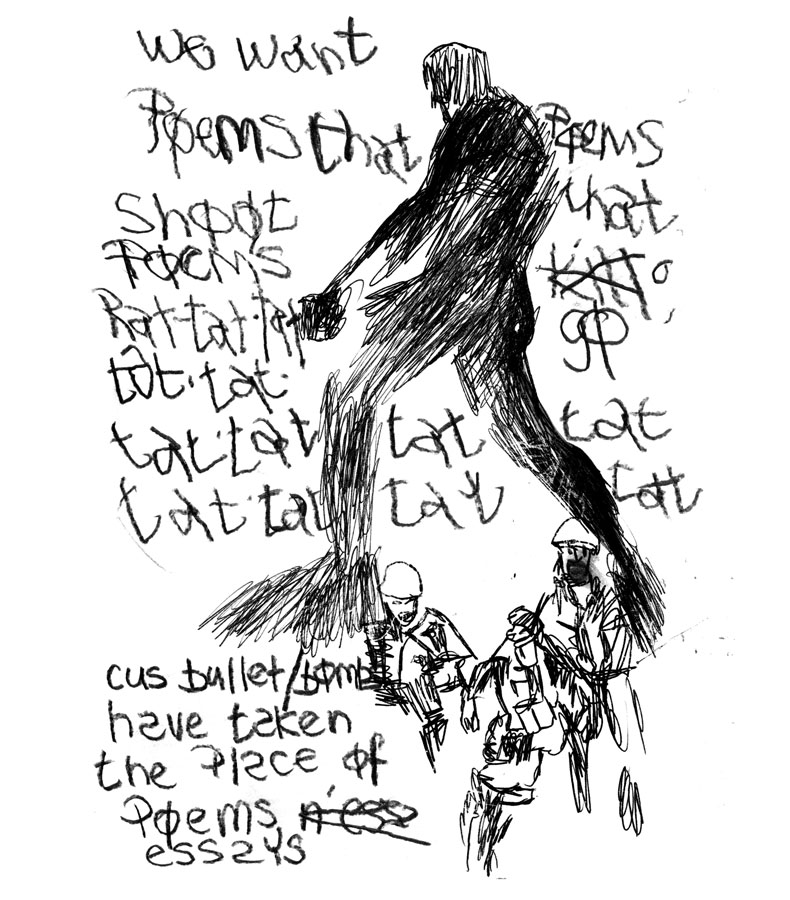 we want
Poems that
Shoot
Poems
Rat-tat-tat
tat-tat
tat-tat tat
tat-tat tat
Poems
that
go
tat
tat
cus bullet/bomb
have taken
the place of
Poems n'
essays